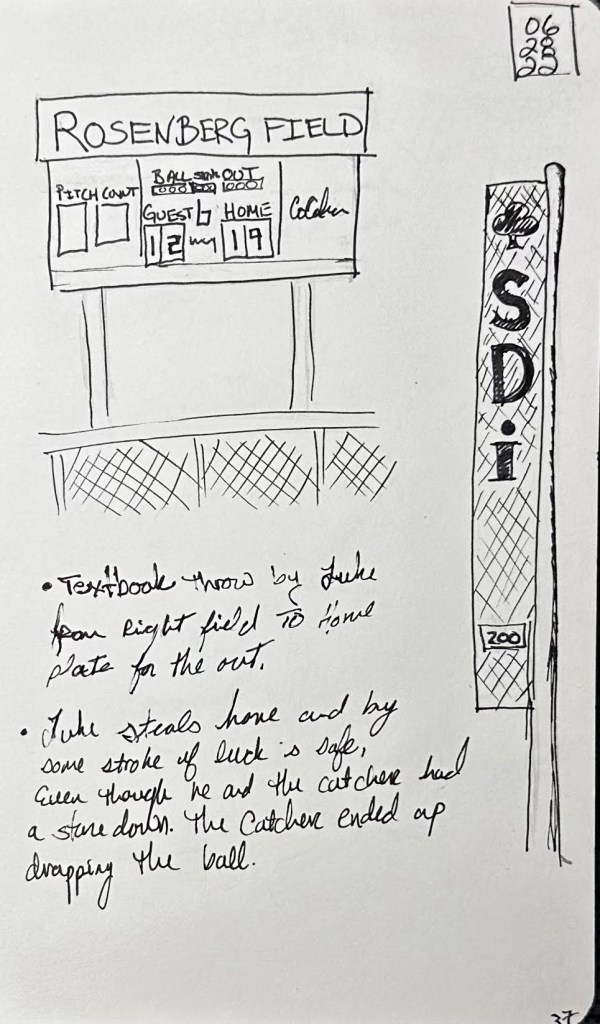 06
28
22
ROSENBERG FIELD
PITCH COUNT
BALL STRIKE OUT
GUEST 6 HOME
12 19
CoCaCola
S
D
•
I
200
• Textbook throw by Luke
from Right field To Home
plate for the out.
• Luke steals home and by
some stroke of luck is safe,
Even though he and the catcher had
a stare down. The Catcher ended up
dropping the ball.
37